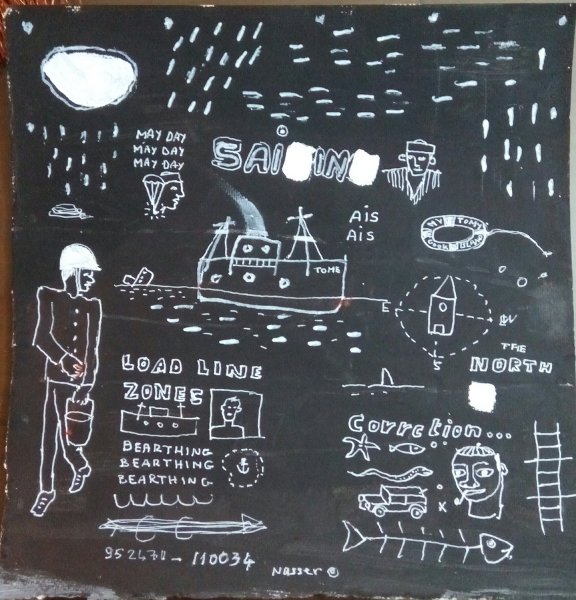 MAY DAY
MAY DAY
MAY DAY
AiS
AiS
MV TOMY
COOK ISLAND
TOME
E
W
S
THE
NORTH
LOAD LINE
ZONES
BEARTHING
BEARTHING
BEARTHING
Corrction...
X
Nasser